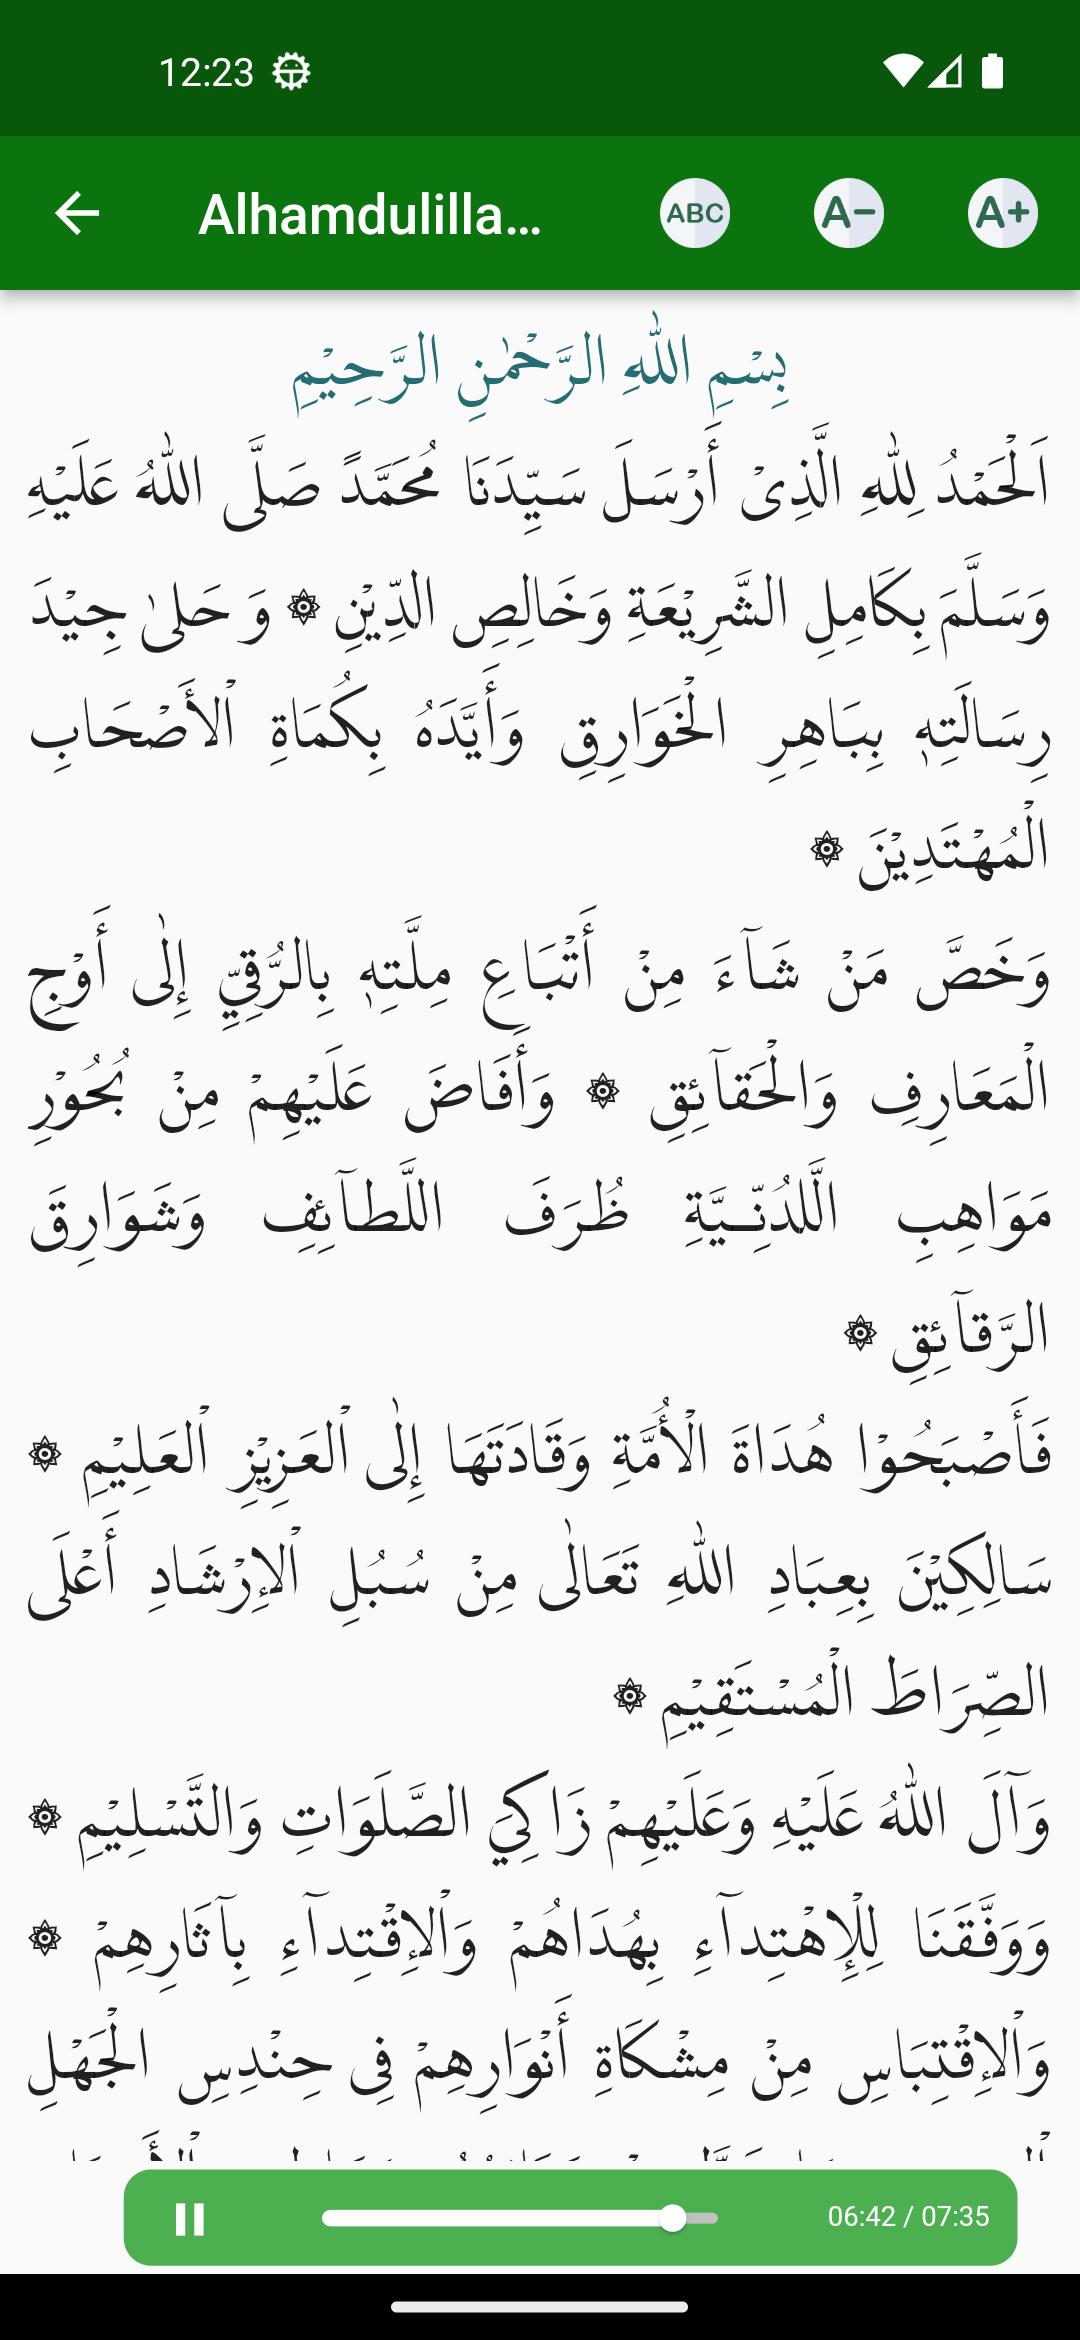 12:23
Alhamdulilla...
ABC
A-
A+
بِسْمِ اللّٰهِ الرَّحْمٰنِ الرَّحِيْمِ
اَلْحَمْدُ لِلّٰهِ الَّذِىْ أَرْسَلَ سَيِّدَنَا مُحَمَّدً صَلَّى اللّٰهُ عَلَيْهِ
وَسَلَّمَ بِكَامِلِ الشَّرِيْعَةِ وَخَالِصِ الدِّيْنِ ۞ وَ حَلىٰ جِيْدَ
رِسَالَتِهٖ بِبَاهِرِ الْخَوَارِقِ وَأَيَّدَهُ بِكُمَاةِ الْأَصْحَابِ
الْمُهْتَدِيْنَ ۞
وَخَصَّ مَنْ شَآءَ مِنْ أَتْبَاعِ مِلَّتِهٖ بِالرُّقِيِّ إِلٰى أَوْجِ
الْمَعَارِفِ وَالْحَقآئِقِ ۞ وَأَفَاضَ عَلَيْهِمْ مِنْ بُحُوْرِ
مَوَاهِبِ الَّلدُنِّــيَّةِ ظُرَفَ اللَّطآئِفِ وَشَوَارِقَ
الرَّقآئِقِ ۞
فَأَصْبَحُوْا هُدَاةَ الْأُمَّةِ وَقَادَتَهَا إِلٰى الْعَزِيْزِ الْعَلِيْمِ ۞
سَالِكِيْنَ بِعِبَادِ اللّٰهِ تَعَالٰى مِنْ سُبُلِ الْاِرْشَادِ أَعْلَى
الصِّرَاطَ الْمُسْتَقِيْمِ ۞
وَآلَ اللّٰهُ عَلَيْهِ وَعَلَيْهِمْ زَاكِيَ الصَّلَوَاتِ وَالتَّسْلِيْمِ ۞
وَوَفَّقَنَا لِلْإِهْتِدآءِ بِهُدَاهُمْ وَالْاِقْتِدآءِ بِآثَارِهِمْ ۞
وَالْاِقْتِبَاسِ مِنْ مِشْكَاةِ أَنْوَارِهِمْ فِى حِنْدِسِ الْجَهْلِ
06:42 / 07:35